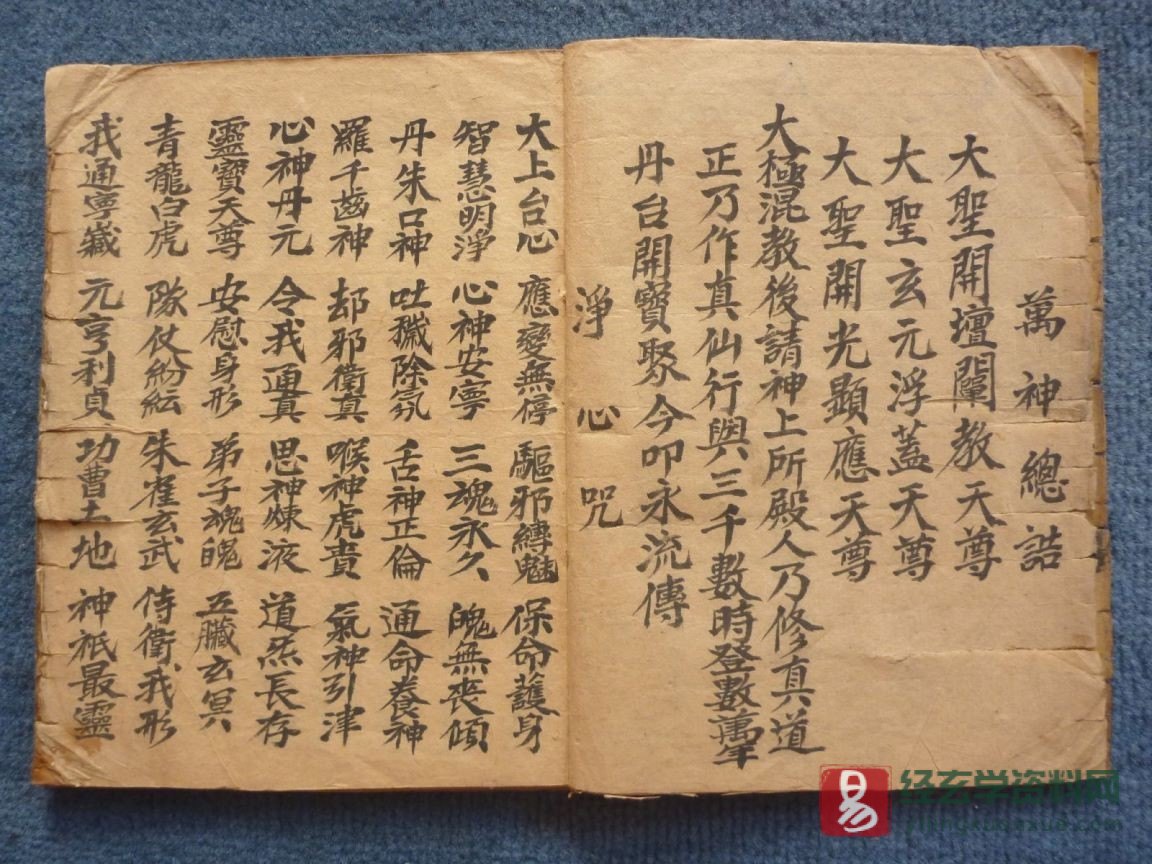 萬神總誥
大聖開壇闡教天尊
大聖玄元浮蓋天尊
大聖開光顯應天尊
大極混教後請神上所殿人乃修真道
正乃作真仙行與三千數時登數萬年
丹台開寶聚今叩永流傳
淨心咒
大上台心 應變無停 驅邪縛魅 保命護身
智慧明淨 心神安寧 三魂永久 魄無喪傾
丹朱口神 吐穢除氛 舌神正倫 通命養神
羅千齒神 却邪衛真 喉神虎賁 氣神引津
心神丹元 令我通真 思神煉液 道炁長存
靈寶天尊 安慰身形 弟子魂魄 五臟玄冥
青龍白虎 隊仗紛紜 朱雀玄武 侍衛我形
我通寧藏 元亨利貞 功曹土地 神祇最靈
易
经玄学资料网